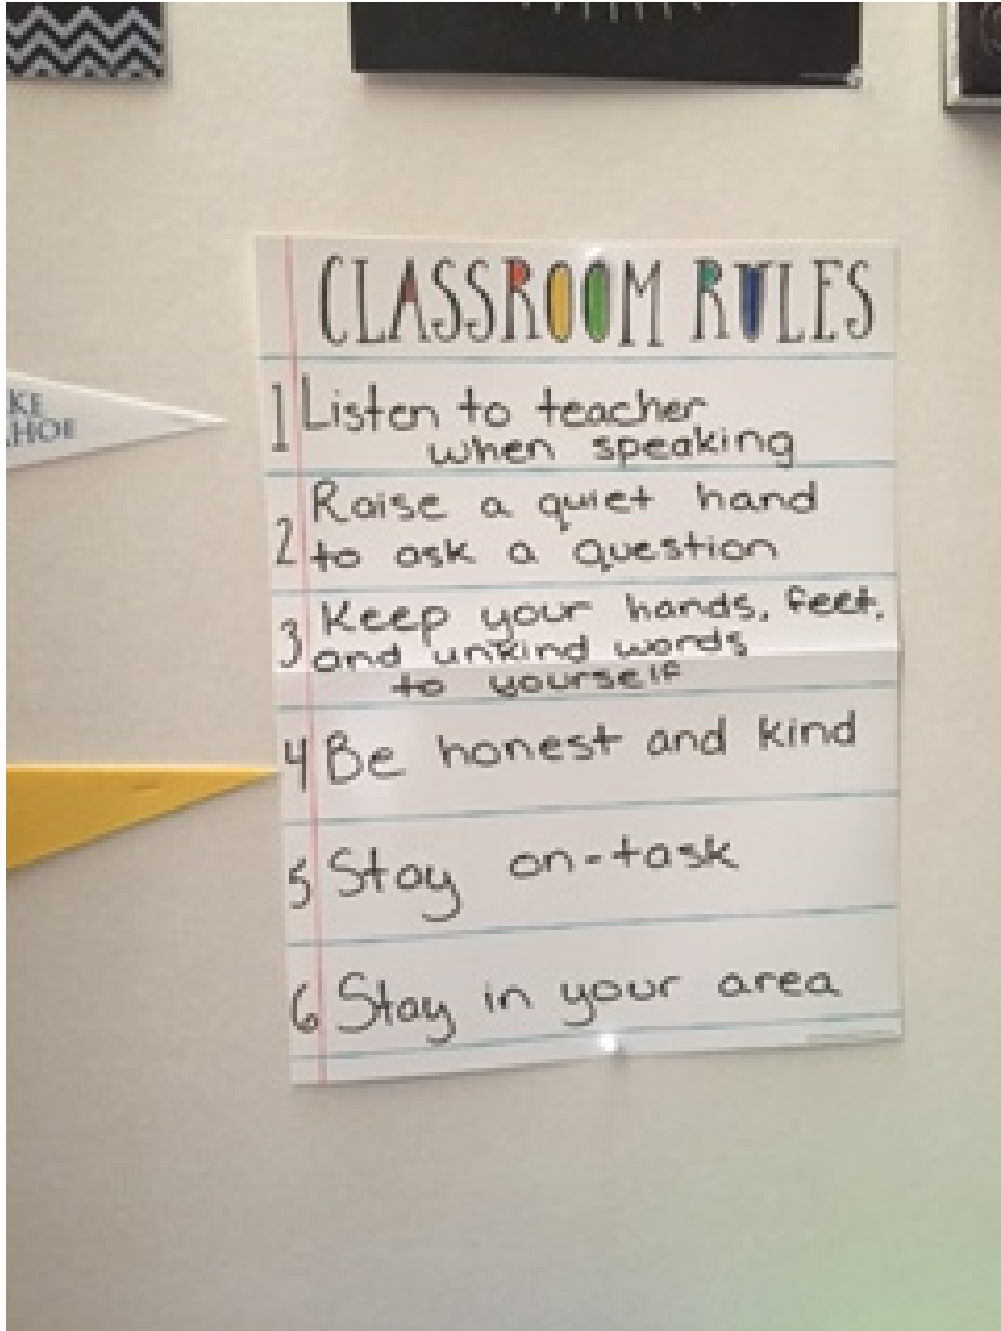 CLASSROOM RULES
KE
AHOE
1 Listen to teacher
when speaking
2 Raise a quiet hand
to ask a question
3 Keep your hands, feet,
and unkind words
to yourself
4 Be honest and kind
5 Stay on-task
6 Stay in your area